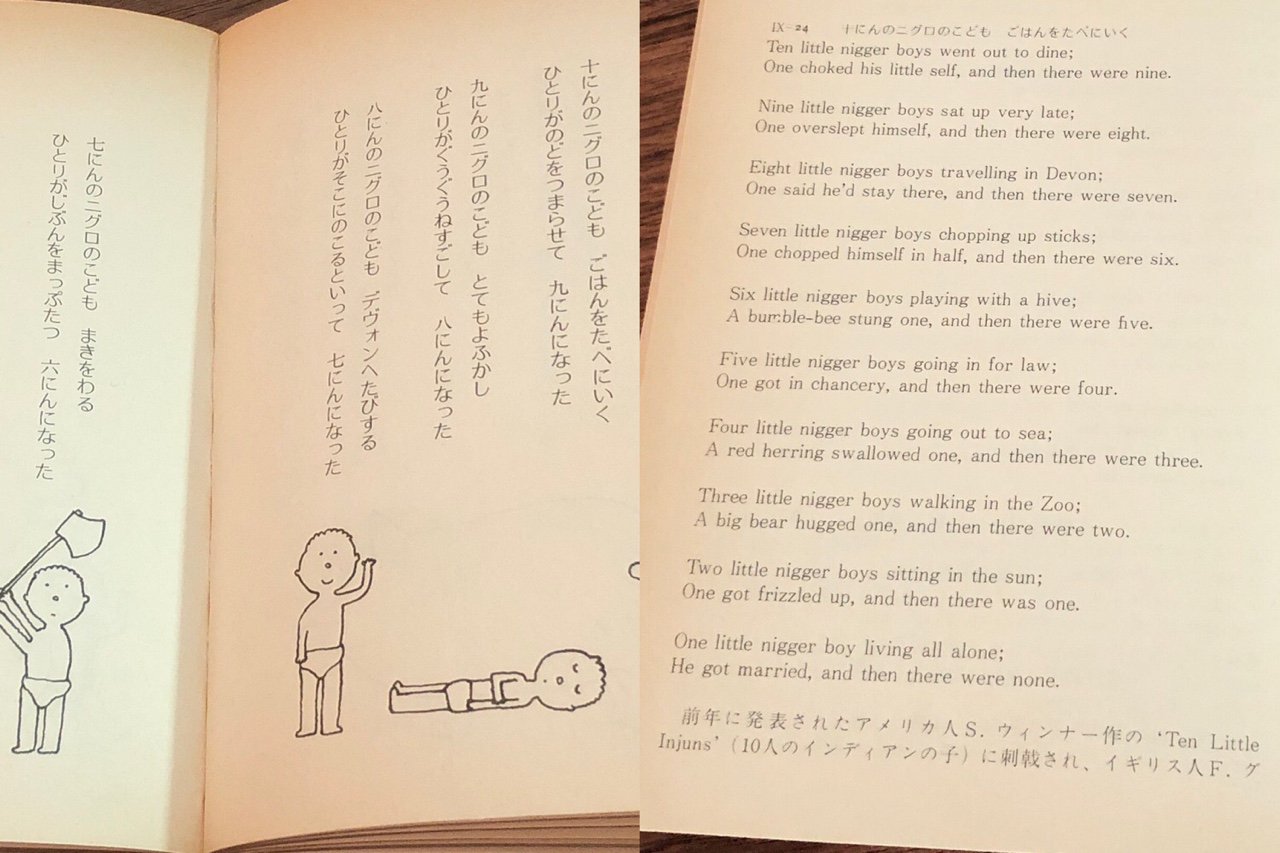 十にんのニグロのこども　ごはんをたべにいく
ひとりがのどをつまらせて　九にんになった
九にんのニグロのこども　とてもよふかし
ひとりがぐうぐうねすごして　八にんになった
八にんのニグロのこども　デヴォンへたびする
ひとりがそこにのこるといって　七にんになった
七にんのニグロのこども　まきをわる
ひとりがじぶんをまっぷたつ　六にんになった
IX-24　十にんのニグロのこども　ごはんをたべにいく
Ten little nigger boys went out to dine;
One choked his little self, and then there were nine.
Nine little nigger boys sat up very late;
One overslept himself, and then there were eight.
Eight little nigger boys travelling in Devon;
One said he'd stay there, and then there were seven.
Seven little nigger boys chopping up sticks;
One chopped himself in half, and then there were six.
Six little nigger boys playing with a hive;
A bumble-bee stung one, and then there were five.
Five little nigger boys going in for law;
One got in chancery, and then there were four.
Four little nigger boys going out to sea;
A red herring swallowed one, and then there were three.
Three little nigger boys walking in the Zoo;
A big bear hugged one, and then there were two.
Two little nigger boys sitting in the sun;
One got frizzled up, and then there was one.
One little nigger boy living all alone;
He got married, and then there were none.
前年に発表されたアメリカ人S. ウィンナー作の 'Ten Little
Injuns'（10人のインディアンの子）に刺戟され、イギリス人F. グ